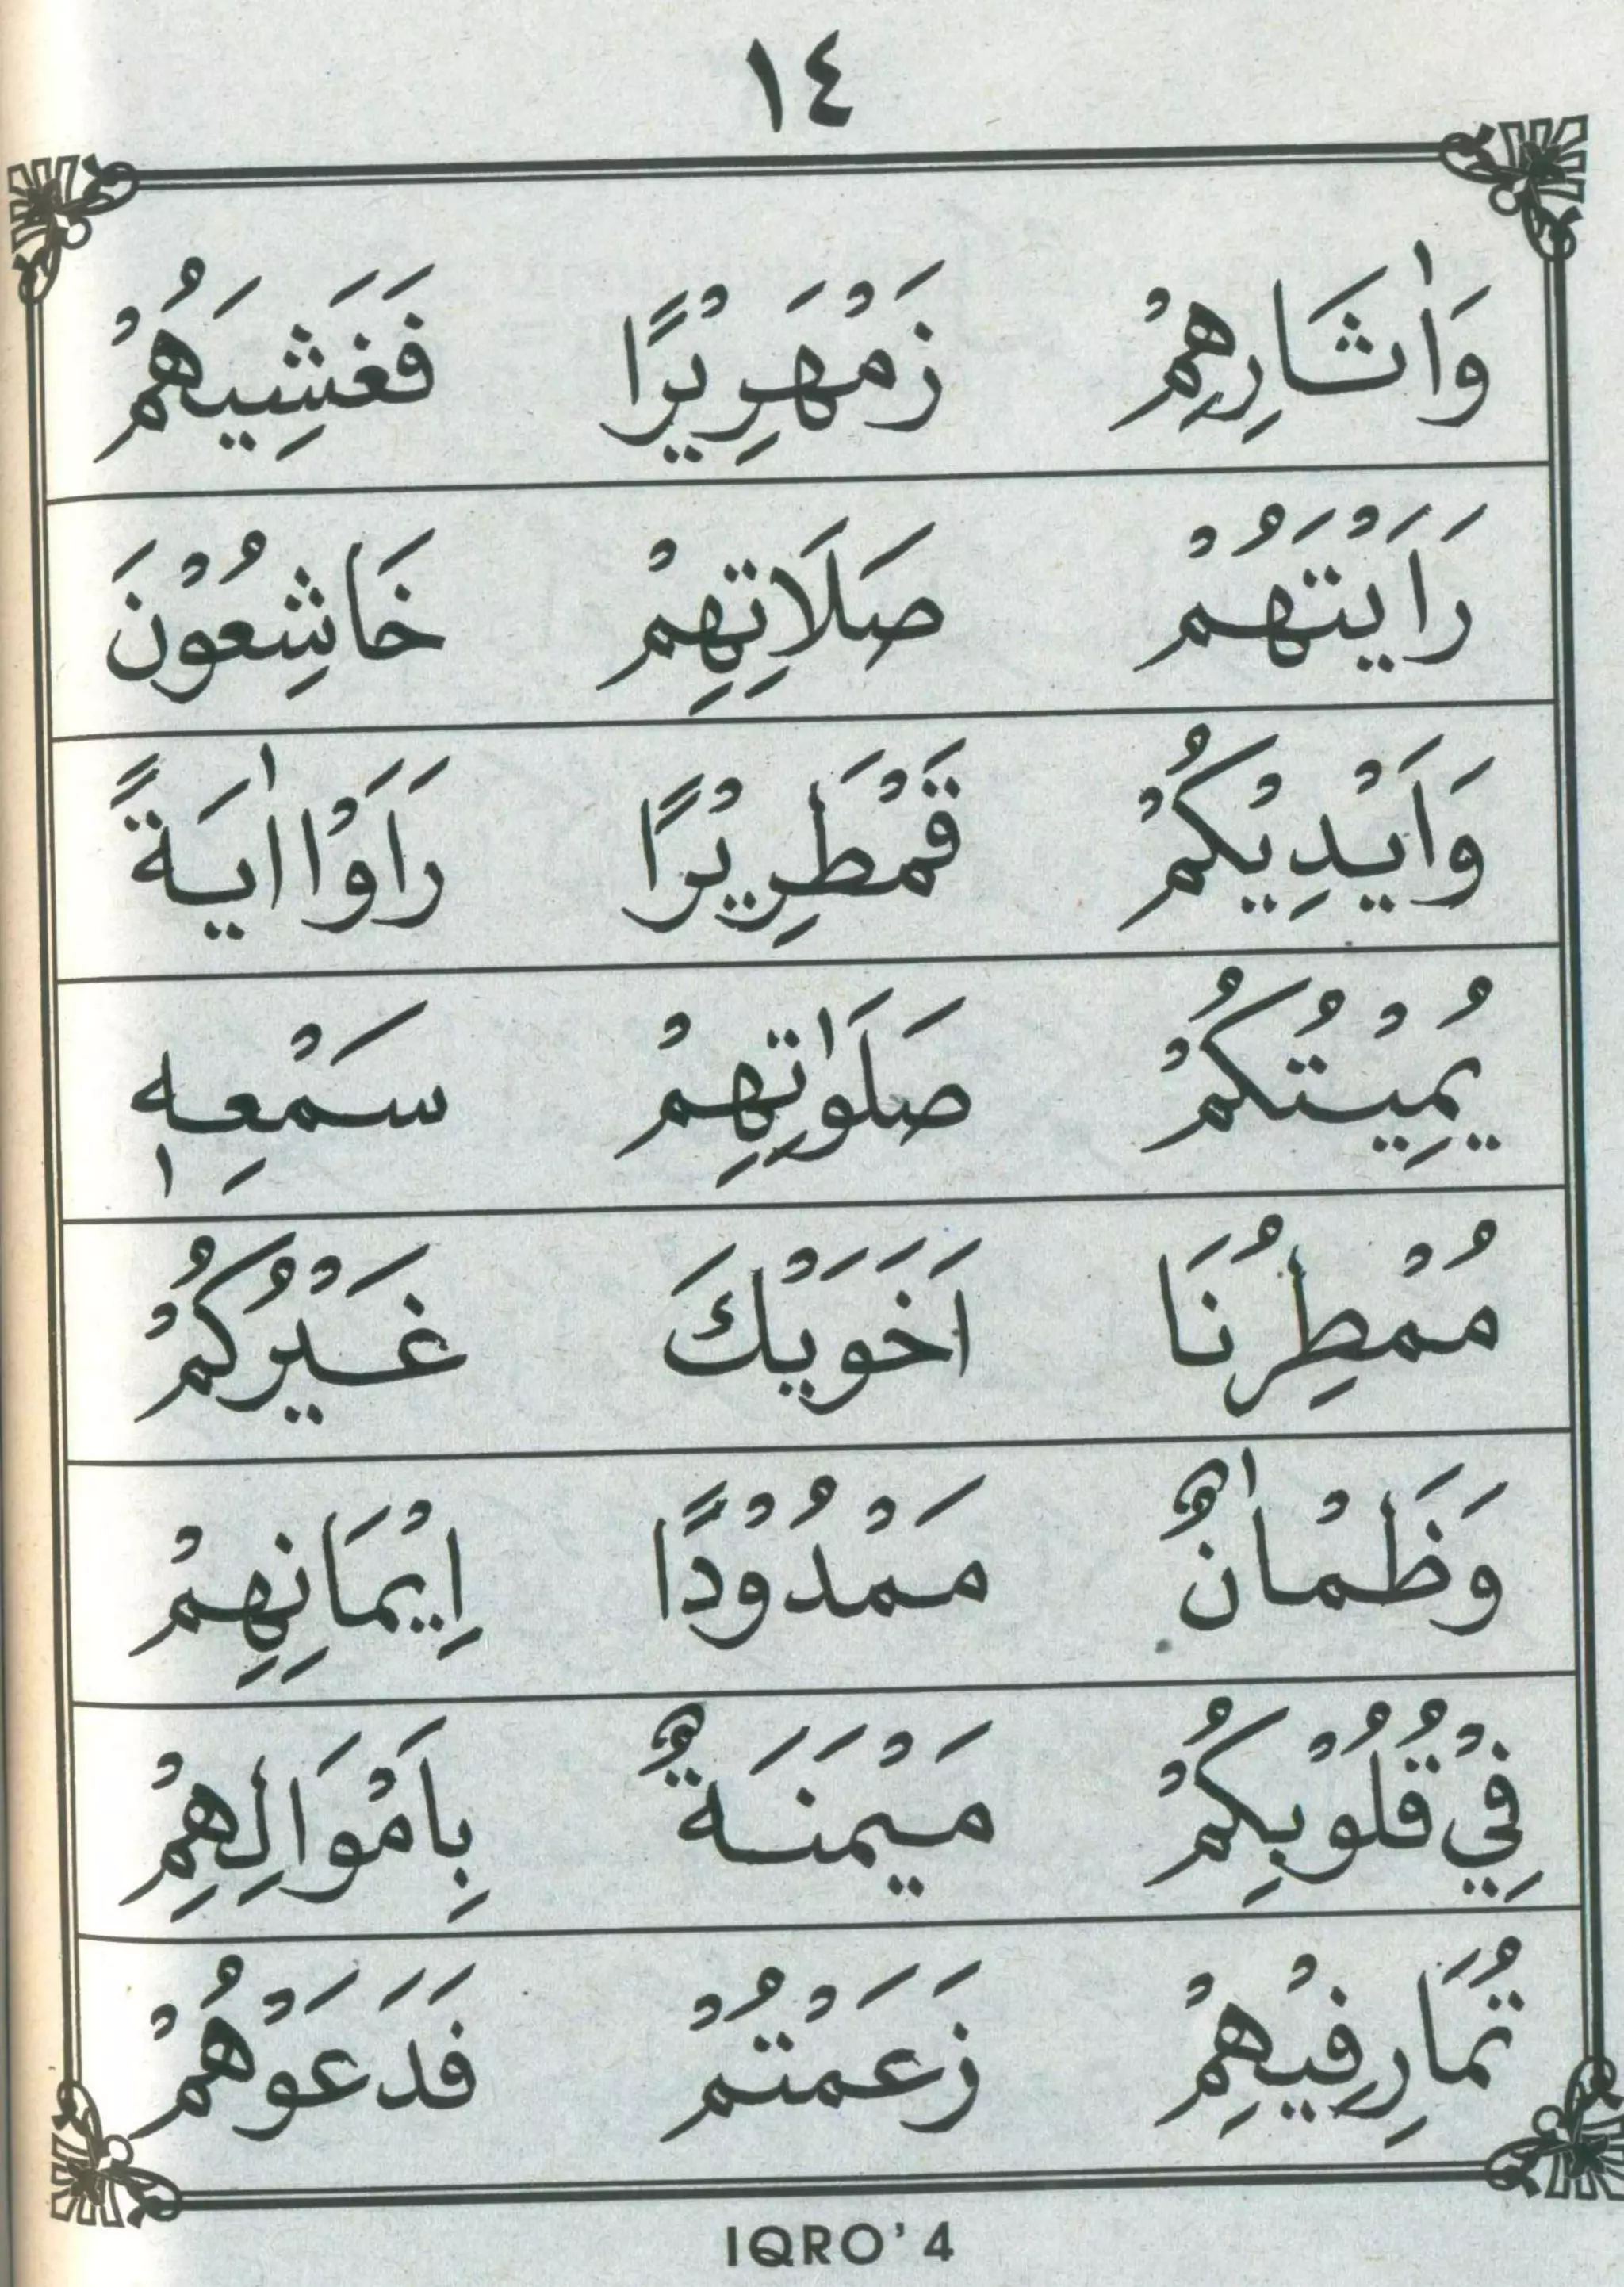 ١٤
وَاٰثَارِهِمْ زَمْهَرِيْرًا فَغَشِيَهُمْ
رَاَيْتَهُمْ صَلَاتِهِمْ خَاشِعُوْنَ
وَاَيْدِيْكُمْ قَمْطَرِيْرًا رَاَوْا اٰيَةً
يُمِيْتُكُمْ صَلَوٰتِهِمْ سَمْعِهٖ
مُمْطِرُنَا اَخَوَيْكَ غَيْرُكُمْ
وَظَمْاٰنٌ مَمْدُوْدًا اِيْمَانِهِمْ
فِيْ قُلُوْبِكُمْ مَيْمَنَةٌ بِاَمْوَالِهِمْ
تُمَارِفِيْهِمْ زَعَمْتُمْ فَدَعَوْهُمْ
IQRO' 4